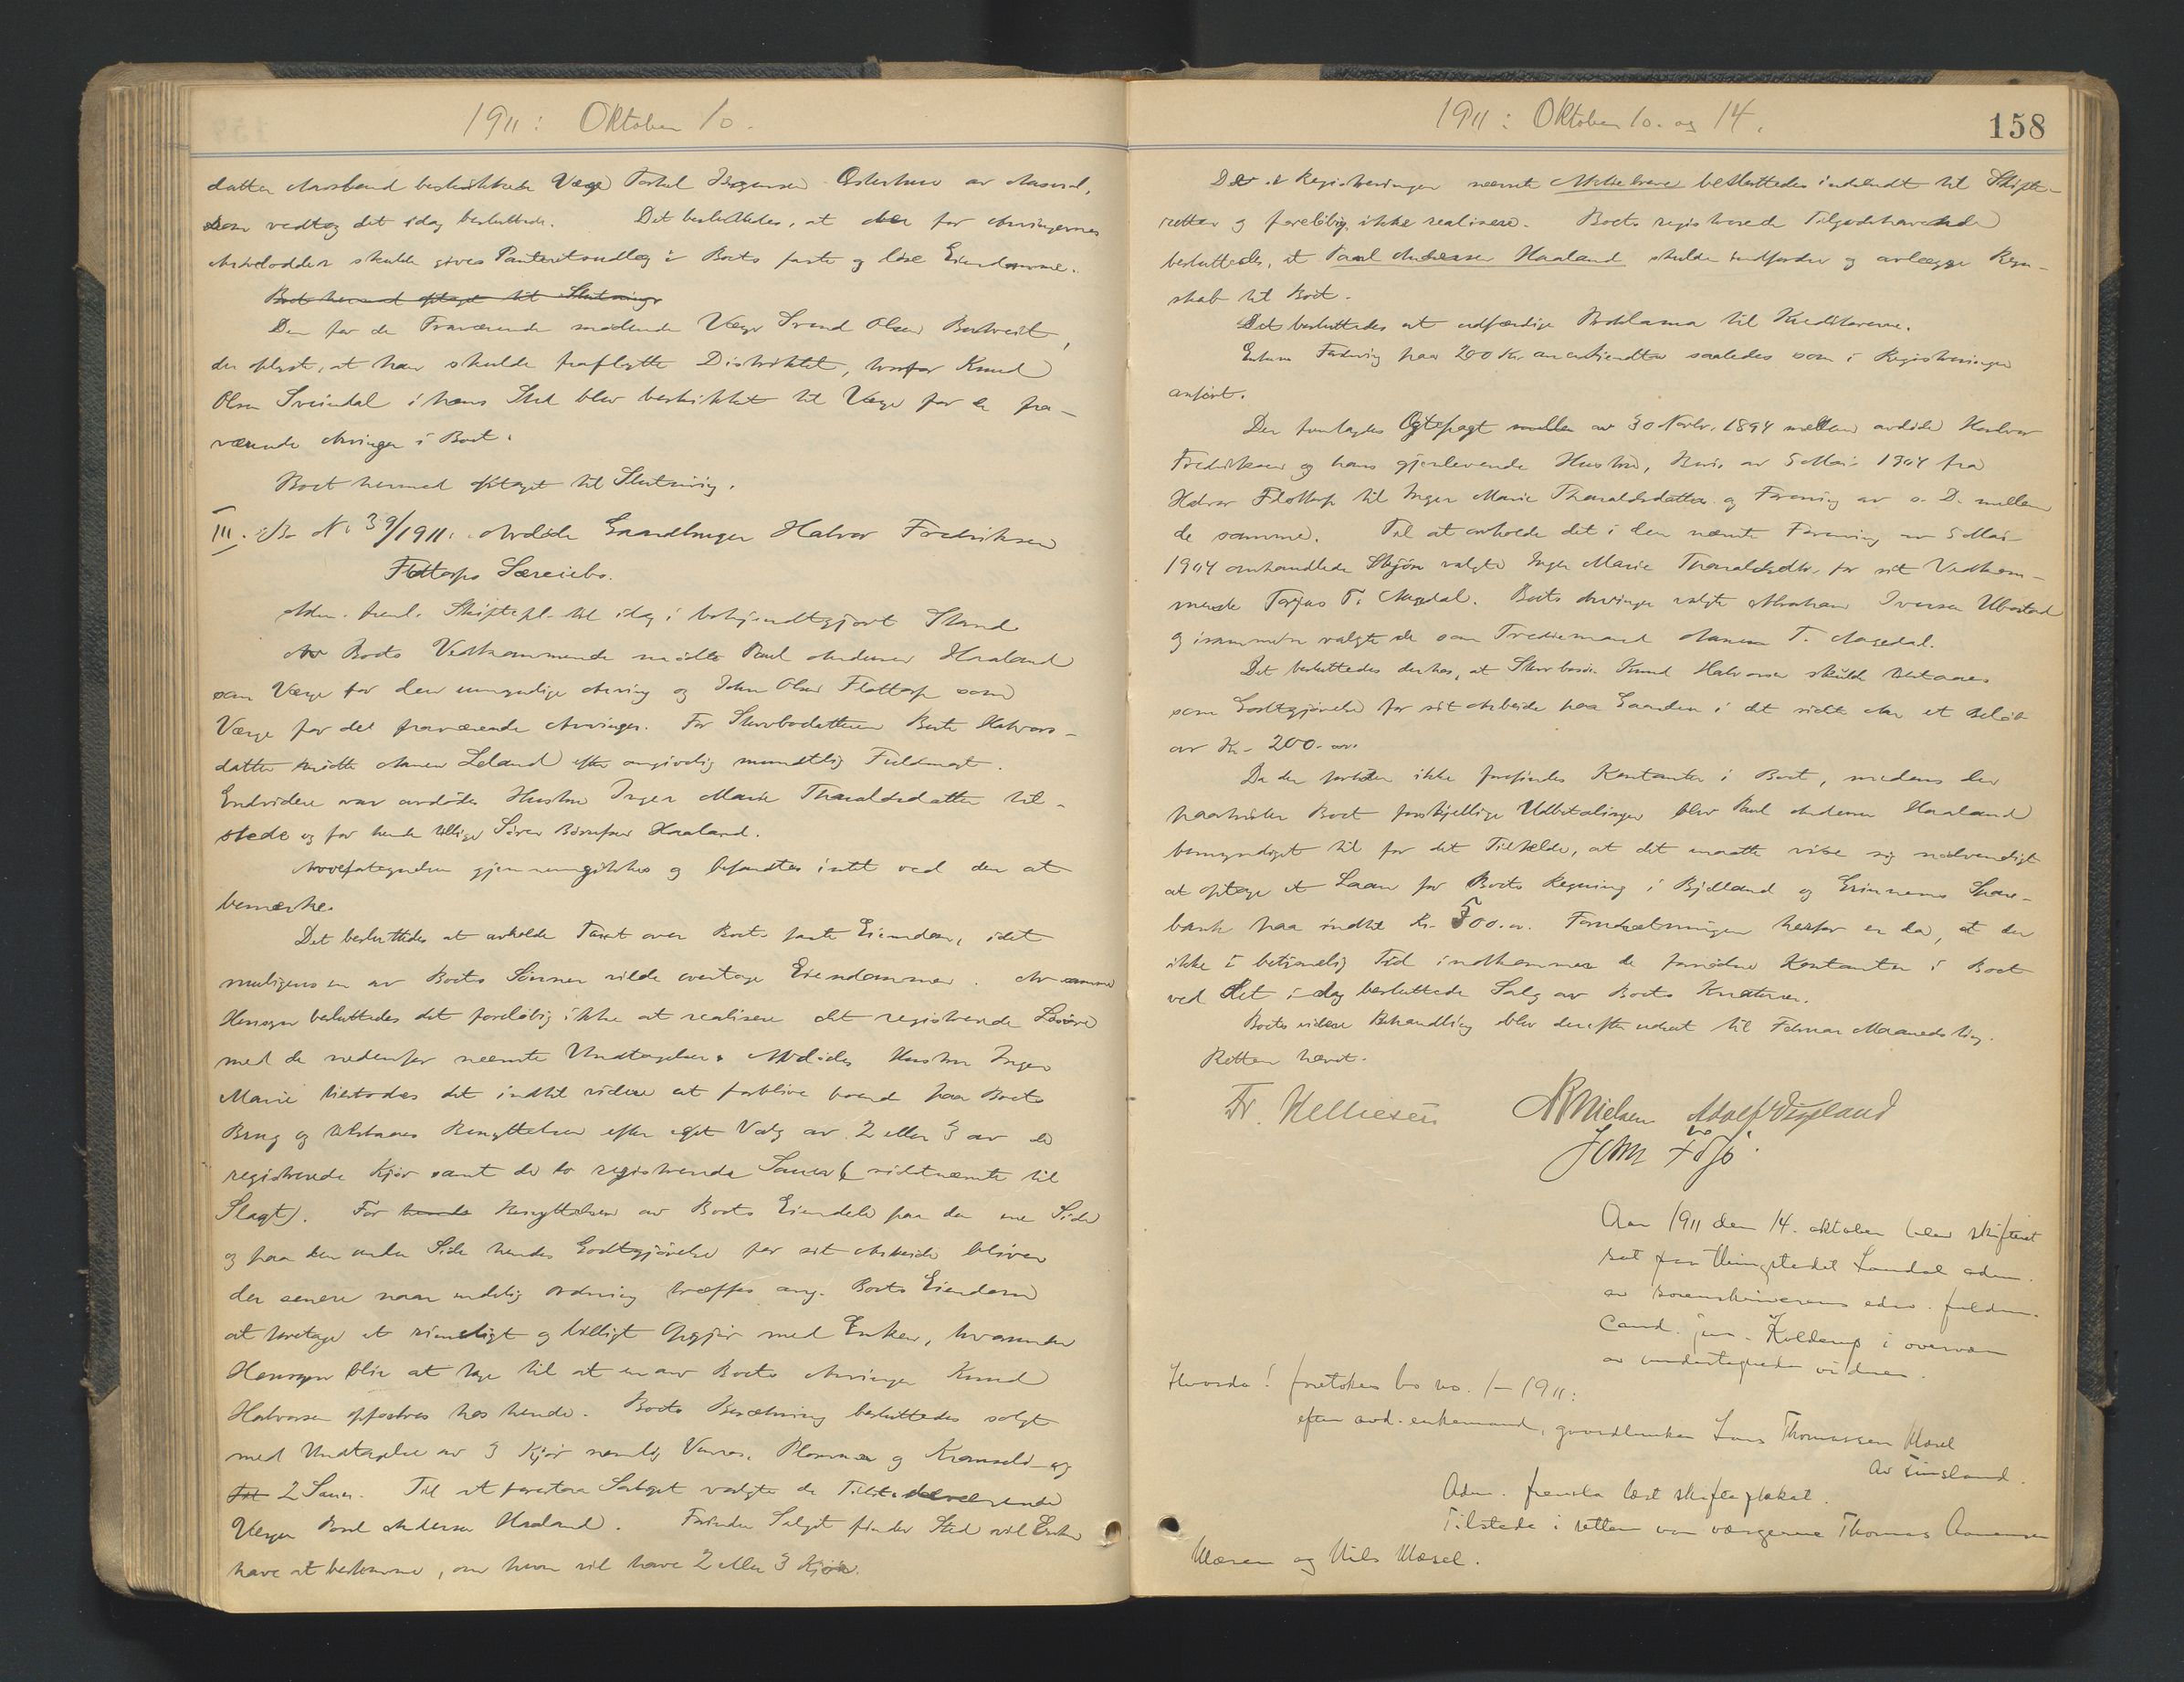 1911: Oktober 10.
datter Aavsband beskikkede Værge Torkel Jørgensen Osterhus av Aaseral,
som vedtog det idag besluttede. Det besluttedes, at der for Arvingernes
Arvelodder skulde gives Panteretsudlæg i Boets faste og løse Eiendomme.
Boet hermed optaget til Slutning
Den for de Fraværende mødende Værge Svend Olsen
der oplyst, at han skulde fraflytte Distriktet, hvorfor Knud
Olsen Sveindal i hans Sted blev beskikket til Værge for de fra-
værende Arvinger i Boet.
Boet hermed optaget til Slutning.
III. Bo No 39/1911. Avdøde Gaardbruger Halvor Fredriksen
Flottorps Særeiebo.
Adm. freml. Skiftepl. til idag i bekjendtgjort Stand
Av Boets Vedkommende mødte Paul Andersen Haaland
som Værge for den umyndige Arving og John Olsen Flottorp som
Værge for det fraværende Arvinger. For Stervbodatteren Berte Halvors-
datter mødte Leland efter angivelig mundtlig Fuldmagt.
Endvidere var avdødes Hustru Inger Marie Tharaldsdatter til-
stede og for hende tillige Søren Haaland.
gjennemgikkes og befandtes intet ved den at
bemærke.
Det besluttedes at avholde Taxt over Boets faste Eiendom, idet
muligens en av Boets Sønner vilde overtage Eiendommen. Av samme
Hensyn besluttedes det foreløbig ikke at realisere det registrerede Løsøre
med de nedenfor nævnte Undtagelser. Avdødes Hustru Inger
Marie tilstodes det indtil videre at forblive boende paa Boets
Brug og tilstaaes Benyttelsen efter eget Valg av 2 eller 3 av de
registrerede Kjør samt de to registrerede Sauer (sidstnævnte til
Slagt). For hende Benyttelsen av Boets Eiendele paa den ene Side
og paa den anden Side hendes Godtgjørelse for sit Arbeide bliver
der senere naar endelig Ordning træffes ang. Boets Eiendom
at foretage et rimeligt og billigt Opgjør med Enken, hvorunder
Hensyn blir at tage til at en av Boets Arvinger Knud
Halvorsen opfostres hos hende. Boets Besætning besluttedes solgt
med Undtagelse av 3 Kjør nemlig Plomma og Kranseld og
Til 2 Sauer. Til at forestaa Salget valgte de Tilstedeværende
Værge Paul Andersen Haaland. Forinden Salget finder Sted vil Enken
have at bestemme, om hun vil have 2 eller 3 Kjør.
1911: Oktober 10. og 14.
158
De i Registreringen nævnte Aktiebreve besluttedes indsendt til Skifte-
retten og foreløbig ikke realisere. Boets registrerede Tilgodehavende
besluttedes, at Paul Andersen Haaland skulde indfordre og avlægge Regn-
skab til Boet.
Det besluttedes at utfærdige Proklama til Kreditorerne.
Enkens Fordring paa 200 Kr. anerkjendtes saaledes som i Registreringen
anført.
Der fremlagdes Egtepagt mellem av 30 Novbr. 1894 mellem avdøde Halvor
Fredriksen og hans gjenlevende Hustru, av 5 Mai 1904 fra
Halvor Flottorp til Inger Marie Tharaldsdatter og Forening av s. D. mellem
de samme. Til at avholde det i den nævnte Forening av 5 Mai
1904 omhandlede Skjøn valgte Inger Marie Tharaldsdtr. for sit Vedkom-
mende Terjus T. Aagedal. Boets Arvinger valgte Abraham Iversen Ubostad
og isammen valgte de som Trediemand T. Aagedal.
Det besluttedes derhos, at Stervbosøn Knud Halvorsen skulde tilstaaes
som Godtgjørelse for sit Arbeide paa Gaarden i det sidste Aar et Beløb
av Kr. 200.
Da der fortiden ikke forefindes Kontanter i Boet, medens der
paahviler Boet forskjellige Udbetalinger blev Paul Andersen Haaland
bemyndiget til for det Tilfælde, at det maatte vise sig nødvendigt
at optage et Laan for Boets Regning i Bjelland og Grinnems Spare-
bank paa indtil Kr. 500. Forudsætningen herfor er da, at der
ikke i betimelig Tid indkommer de fornødne Kontanter i Boet
ved det i dag besluttede Salg av Boets Kreaturer.
Boets videre Behandling blev derefter udsat til Februar Maaneds Ting.
Retten hævet.
Fr. Melliesen NNielsen Adolf Vigeland
John Fosjø
Aar 1911 den 14. oktober blev skifteret
sat paa thingstedet Laudal adm.
av sorenskriverens edsv. fuldm.
cand. jur. Kolderup i overvær
av undertegnede vidner.
Hvorda! foretokes bo no. 1-1911:
efter avd. enkemand, gaardbruker Lars Thomassen Mæsel
av Finsland.
Adm. fremla læst skifteplakat.
Tilstede i retten var værgerne Thomas Aanensen
og Nils Mæsel.